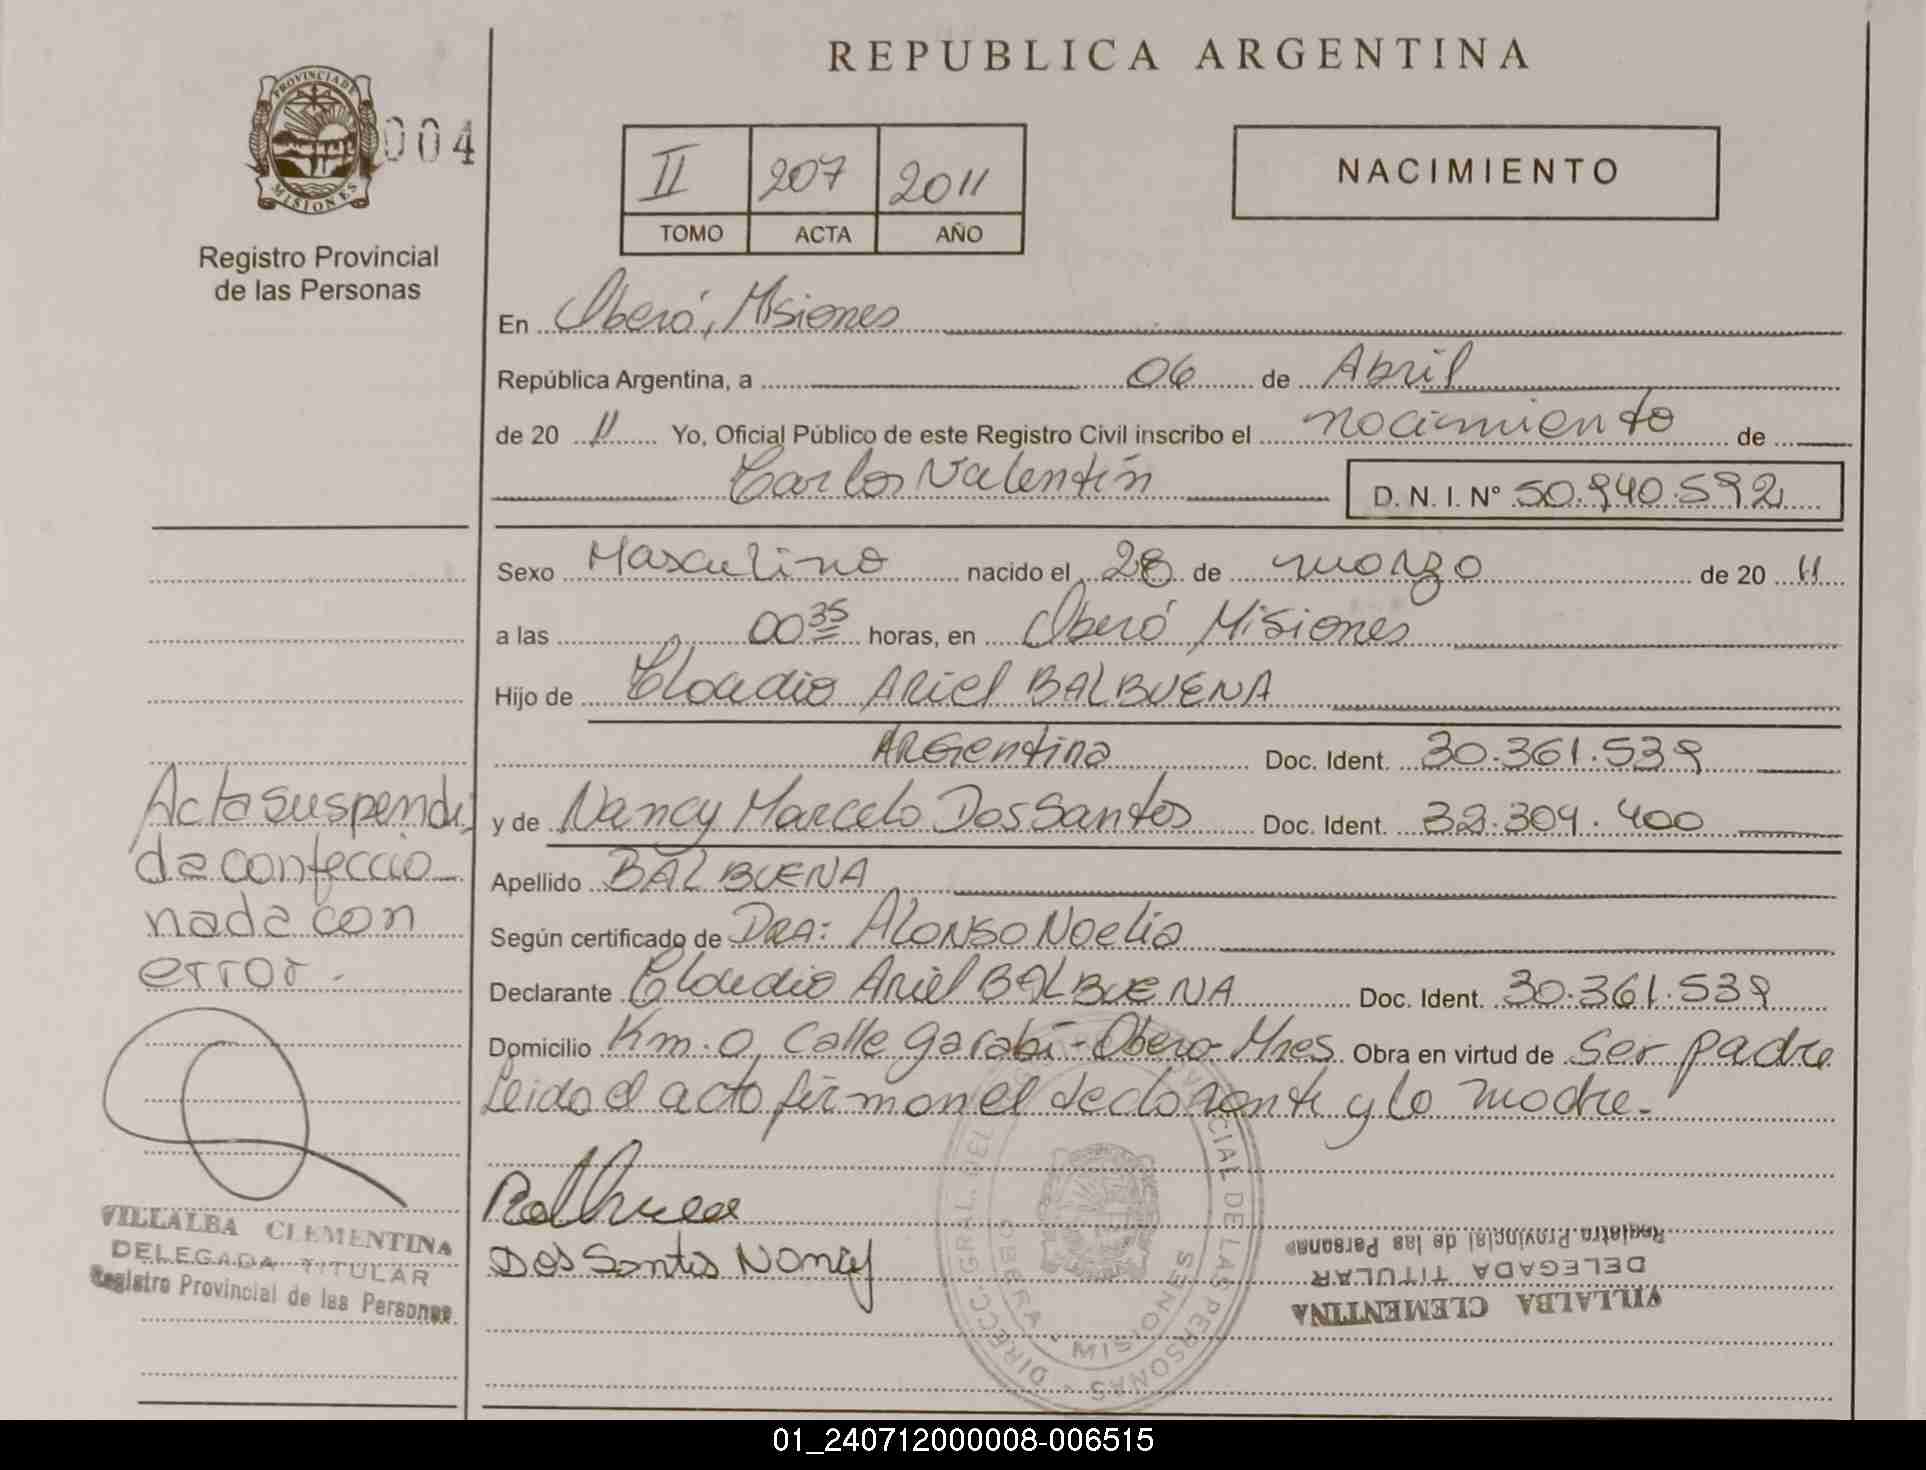 REPUBLICA ARGENTINA
PROVINCIA DE
MISIONES
004
Registro Provincial
de las Personas
II 207 2011
TOMO ACTA AÑO
NACIMIENTO
En Oberá, Misiones
República Argentina, a 06 de Abril
de 20 11 Yo, Oficial Público de este Registro Civil inscribo el nacimiento de
Carlos Valentín D. N. I. N° 50.940.592
Sexo Masculino nacido el 28 de marzo de 20 11
a las 00 35 horas, en Oberá Misiones
Hijo de Claudio Ariel BALBUENA
Argentina Doc. Ident. 30.361.539
y de Nancy Marcela Dos Santos Doc. Ident. 32.304.400
Apellido BALBUENA
Según certificado de Dra: Alonso Noelia
Declarante Claudio Ariel BALBUENA Doc. Ident. 30.361.539
Domicilio Km. 0, Calle garabí - Oberá - Mnes. Obra en virtud de Ser padre
Leida el acta firman el declarante y la madre.
Dos Santos Nancy
Acta suspendi
da confeccio
nada con
error.
VILLALBA CLEMENTINA
DELEGADA TITULAR
Registro Provincial de las Personas
DIRECC. GRAL. DEL REGISTRO PROVINCIAL DE LAS PERSONAS
OBERA - MISIONES
VILLALBA CLEMENTINA
DELEGADA TITULAR
Registro Provincial de las Personas
01_240712000008-006515